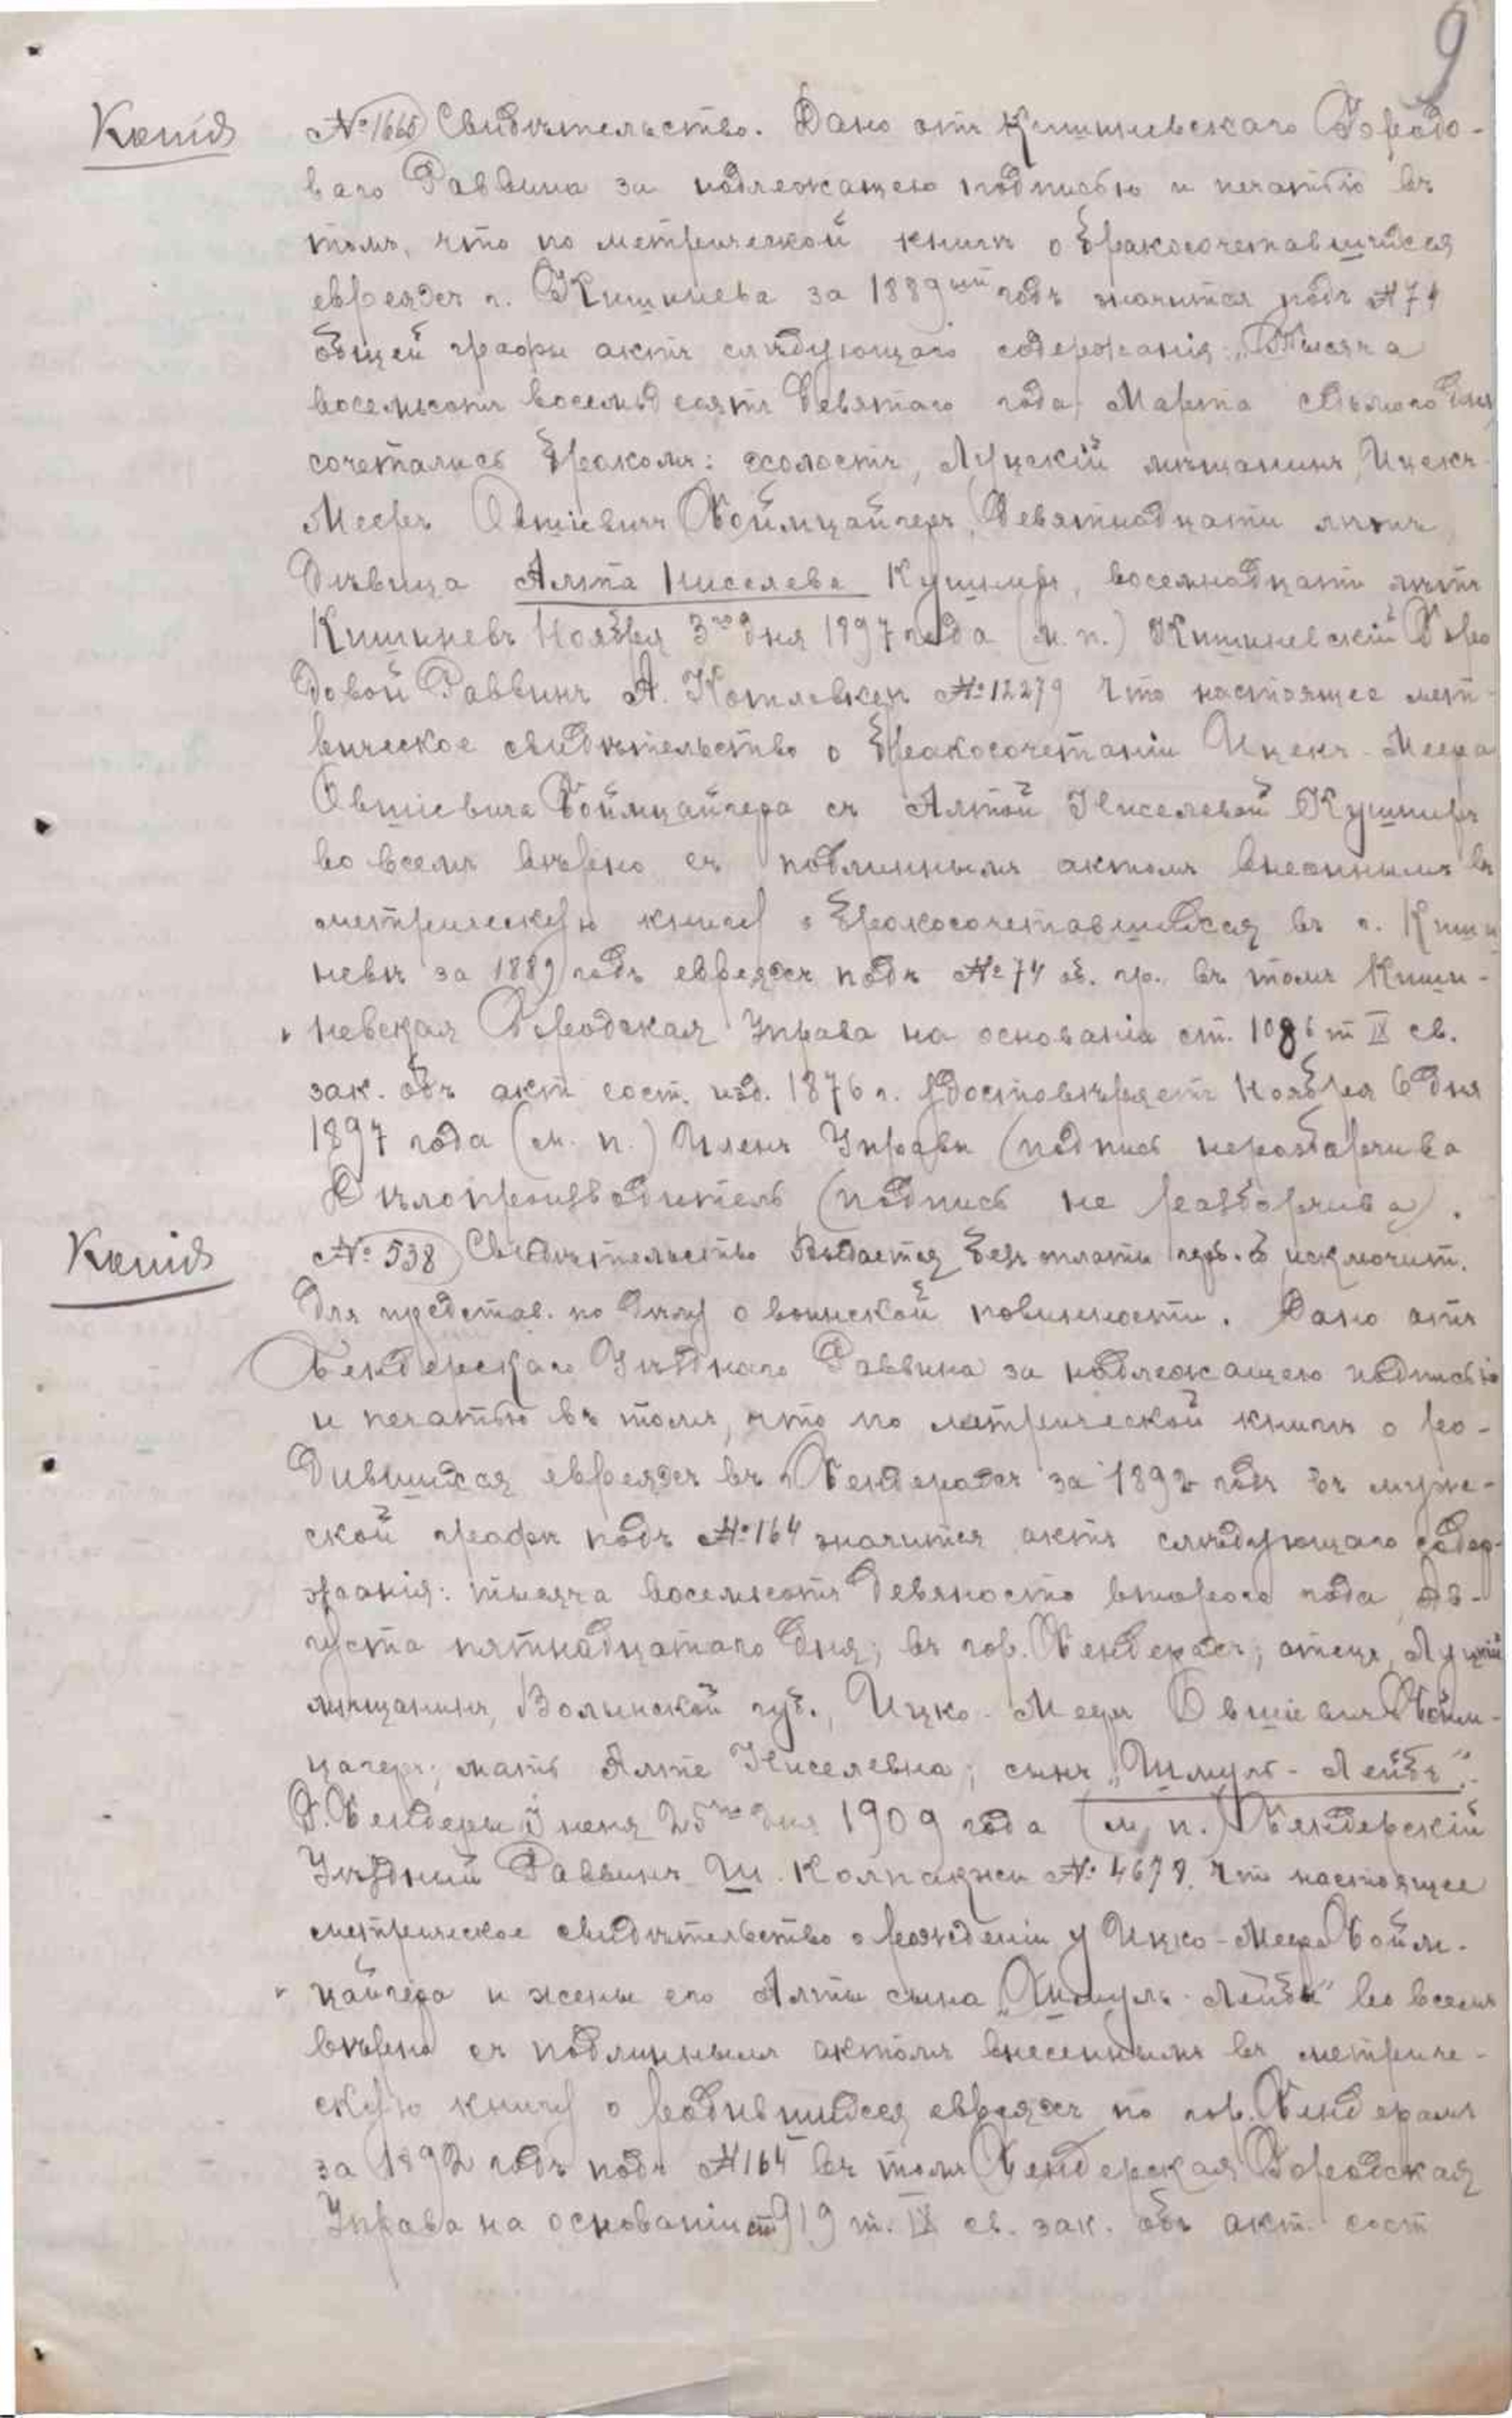 9
Копія
№ 1665 Свидѣтельство. Дано отъ Кишиневскаго Городо-
ваго Раввина за надлежащею подписью и печатью въ
томъ, что по метрической книгѣ о бракосочетавшихся
евреяхъ г. Кишинева за 1889ый годъ значится подъ №74
общей графы актъ слѣдующаго содержанія: „Тысяча
восемьсотъ восемьдесятъ девятаго года Марта седьмого дня
сочетались бракомъ: холостъ, Луцскій мѣщанинъ, Ицекъ-
Меєръ Овшіевичъ Воймцайгеръ, девятнадцати лѣтъ,
дѣвица Алта Киселева Кушниръ, восемнадцати лѣтъ
Кишиневъ Ноября 3го дня 1897 года (м. п.) Кишиневскій Горо
довой Раввинъ А. Котловкеръ № 12279 Что настоящее мет-
рическое свидѣтельство о бракосочетаніи Ицекъ-Меера
Овшіевича Воймцайгера съ Алтой Киселевой Кушниръ
во всемъ вѣрно съ подлиннымъ актомъ внесеннымъ въ
метрическую книгу о бракосочетавшихся въ г. Киши
невѣ за 1889 годъ евреяхъ подъ № 74 об. гр., въ томъ Киши-
невская Городская Управа на основаніи ст. 1086 т IX св.
зак. объ акт сост. изд. 1876 г. удостовѣряетъ Ноября 6 дня
1897 года (м. п.) Членъ Управы (подпись неразборчива
Дѣлопроизводитель (подпись не разборчива).
Копія
№ 538 Свидѣтельство Выдается безъ оплаты герб. сб исключит.
для представ. по дѣлу о воинской повинности. Дано отъ
Бендерскаго Уѣзднаго Раввина за надлежащею подписью
и печатью въ томъ, что по метрической книгѣ о ро-
дившихся евреяхъ въ г. Бендерахъ за 1892 годъ въ муже-
ской графѣ подъ № 164 значится актъ слѣдующаго содер-
жанія: тысяча восемьсотъ девяносто второго года, Ав-
густа пятнадцатаго дня; въ гор. Бендерахъ; отецъ, Луцкій
мѣщанинъ, Волынской губ., Ицко-Меер Овшіевичъ Войм-
цагеръ; мать Алте Киселевна; сынъ „Шмуль-Лейбъ".
Г. Бендеры Іюня 25го дня 1909 года (м. п.) Бендерскій
Уѣздный Раввинъ Ш. Колпакжи № 4678. Что настоящее
метрическое свидѣтельство о рожденіи у Ицко-Меера Войм-
цайгера и жены его Алты сына „Шмуль-Лейбы" во всемъ
вѣрно съ подлиннымъ актомъ внесеннымъ въ метриче-
скую книгу о родившихся евреяхъ по гор. Бендерамъ
за 1892 годъ подъ №164 въ томъ Бендерская Городская
Управа на основаніи ст 919 т. IX св. зак. объ акт. сост